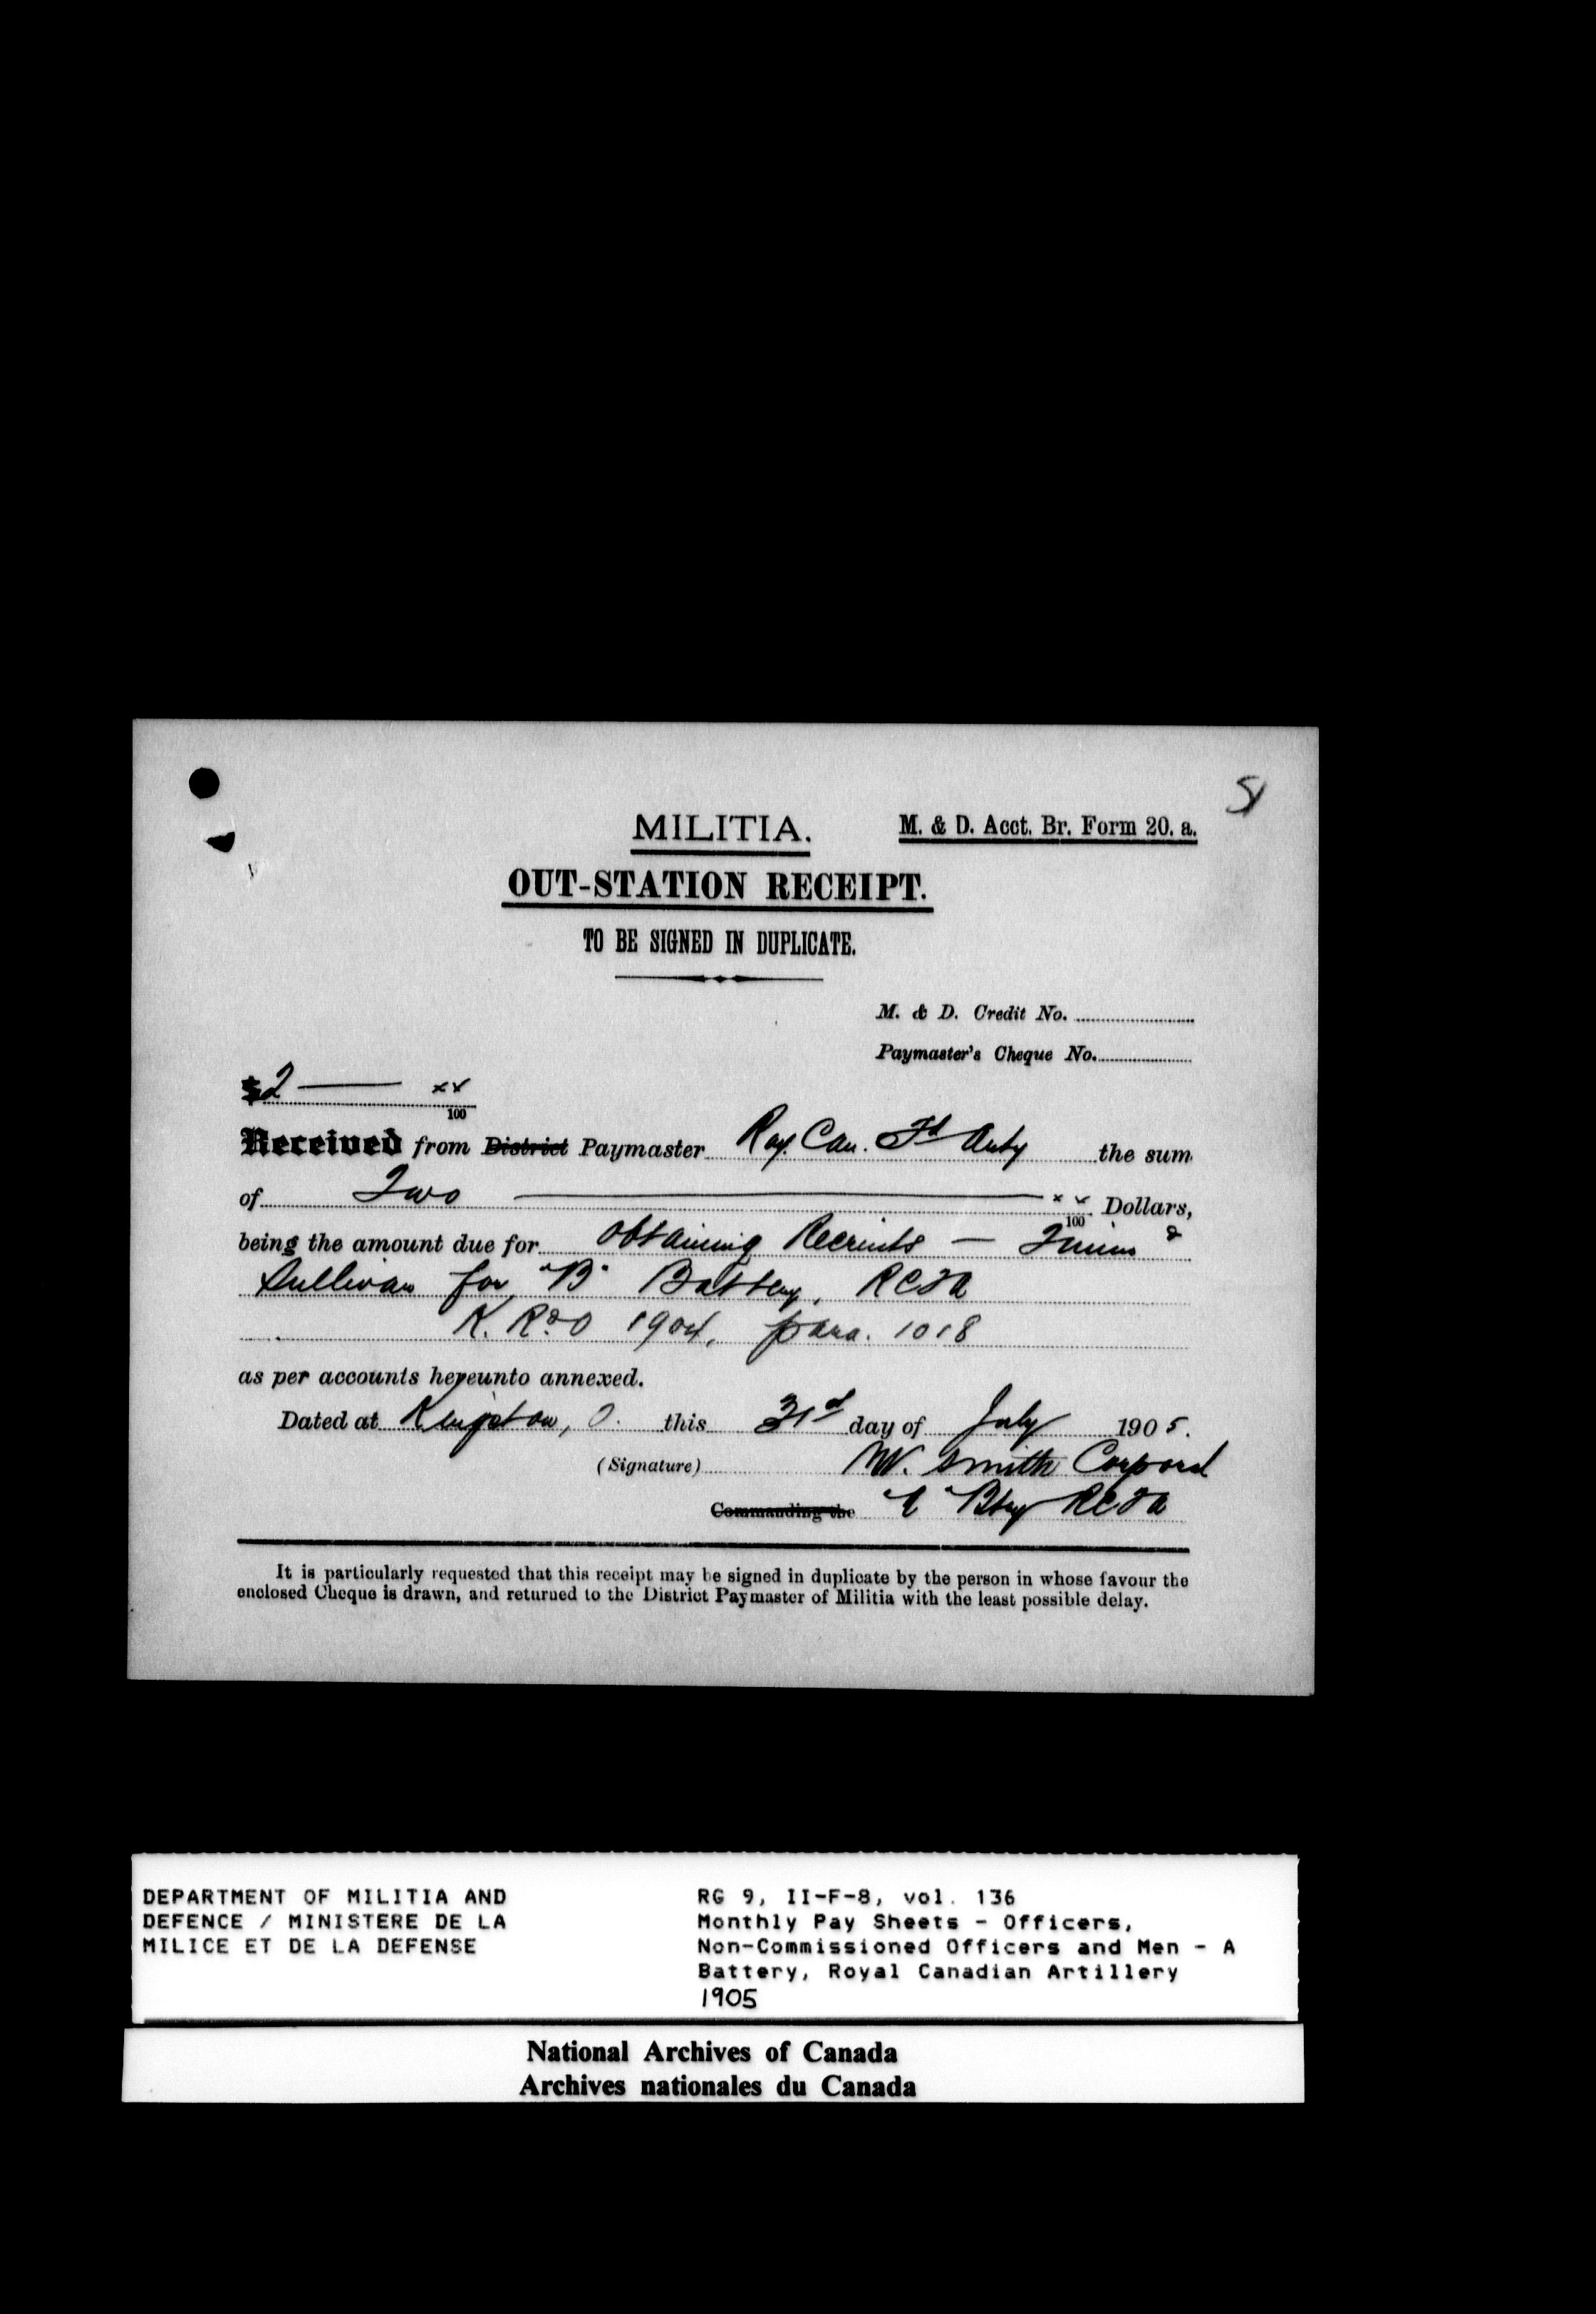 MILITIA.
M. & D. Acct. Br. Form 20. a.
OUT-STATION RECEIPT.
TO BE SIGNED IN DUPLICATE.
M. & D. Credit No.
Paymaster's Cheque No.
$2 — xx/100
Received from District Paymaster Roy. Can. Fd Arty the sum
of Two — xx/100 Dollars,
being the amount due for obtaining Recruits — &
Sullivan for "B" Battery, RCFA
K. R & O 1904, para. 1018
as per accounts hereunto annexed.
Dated at Kingston, O. this 31st day of July 1905.
(Signature) W. Smith Corporal
Commanding the Bty RCFA
It is particularly requested that this receipt may be signed in duplicate by the person in whose favour the
enclosed Cheque is drawn, and returned to the District Paymaster of Militia with the least possible delay.
DEPARTMENT OF MILITIA AND
DEFENCE / MINISTERE DE LA
MILICE ET DE LA DEFENSE
RG 9, II-F-8, vol. 136
Monthly Pay Sheets - Officers,
Non-Commissioned Officers and Men - A
Battery, Royal Canadian Artillery
1905
National Archives of Canada
Archives nationales du Canada